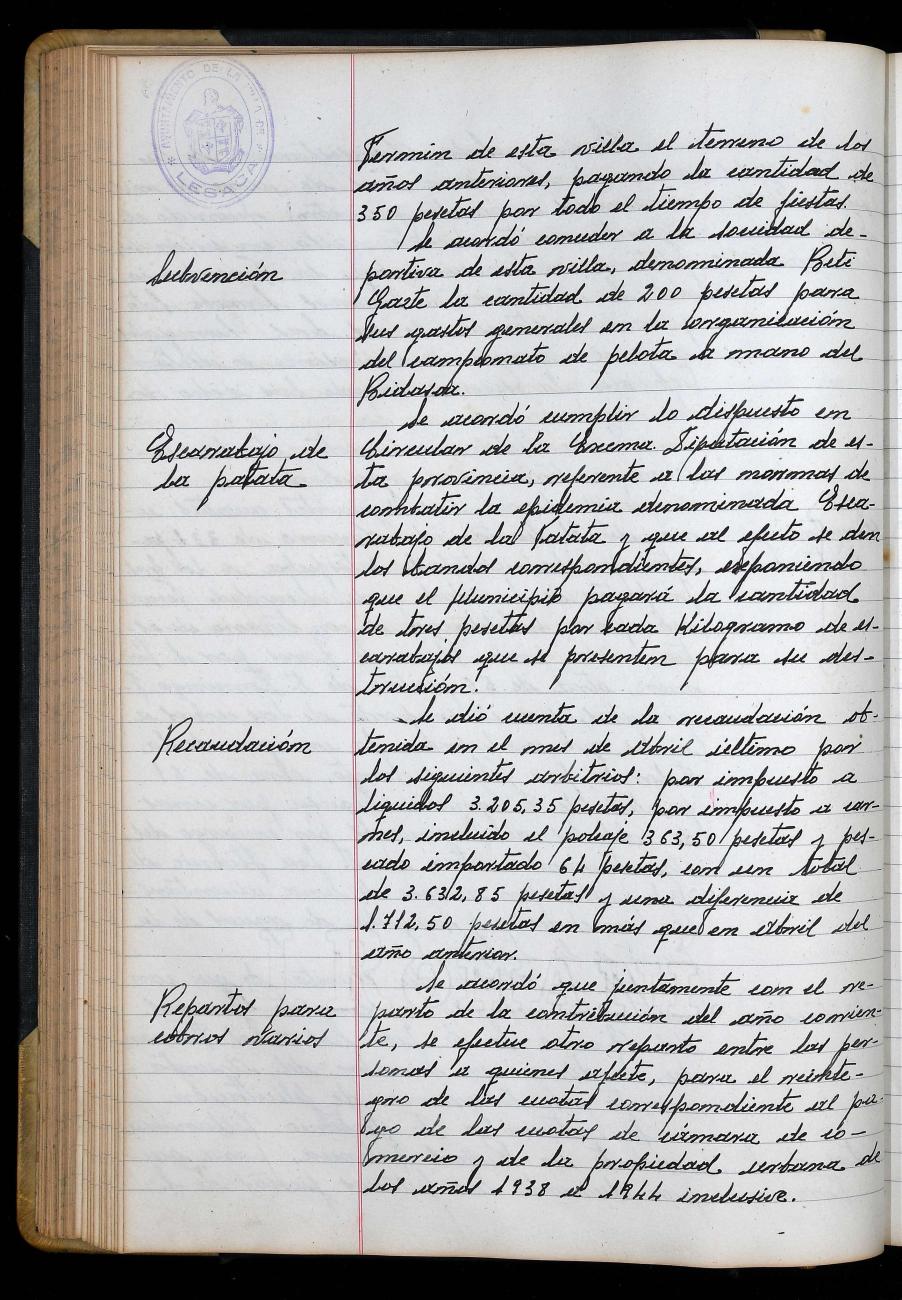 AYUNTAMIENTO DE LA VILLA DE
LESACA
Fermin de esta villa el terreno de los
años anteriores, pagando la cantidad de
350 pesetas por todo el tiempo de fiestas.
Subvención
Se acordó conceder a la sociedad de-
portiva de esta villa, denominada Beti
Gazte la cantidad de 200 pesetas para
sus gastos generales en la organización
del campeonato de pelota a mano del
Bidasoa.
Escarabajo de
la patata
Se acordó cumplir lo dispuesto en
Circular de la Excma. Diputación de es-
ta provincia, referente a las normas de
combatir la epidemia denominada Esca-
rabajo de la Patata y que al efecto se den
los bandos correspondientes, exponiendo
que el Municipio pagará la cantidad
de tres pesetas por cada Kilogramo de es-
carabajos que se presenten para su des-
trucción.
Recaudación
Se dió cuenta de la recaudación ob-
tenida en el mes de Abril último por
los siguientes arbitrios: por impuesto a
liquidos 3.205,35 pesetas, por impuesto a car-
nes, incluido el poteaje 363,50 pesetas y pes-
cado importado 64 pesetas, con un total
de 3.632,85 pesetas y una diferencia de
1.712,50 pesetas en más que en Abril del
año anterior.
Repartos para
cobros varios
Se acordó que juntamente con el re-
parto de la contribución del año corrien-
te, se efectue otro reparto entre las per-
sonas a quienes afecte, para el reinte-
gro de las cuotas correspondiente al pa-
go de las cuotas de cámara de co-
mercio y de la propiedad urbana de
los años 1938 a 1944 inclusive.